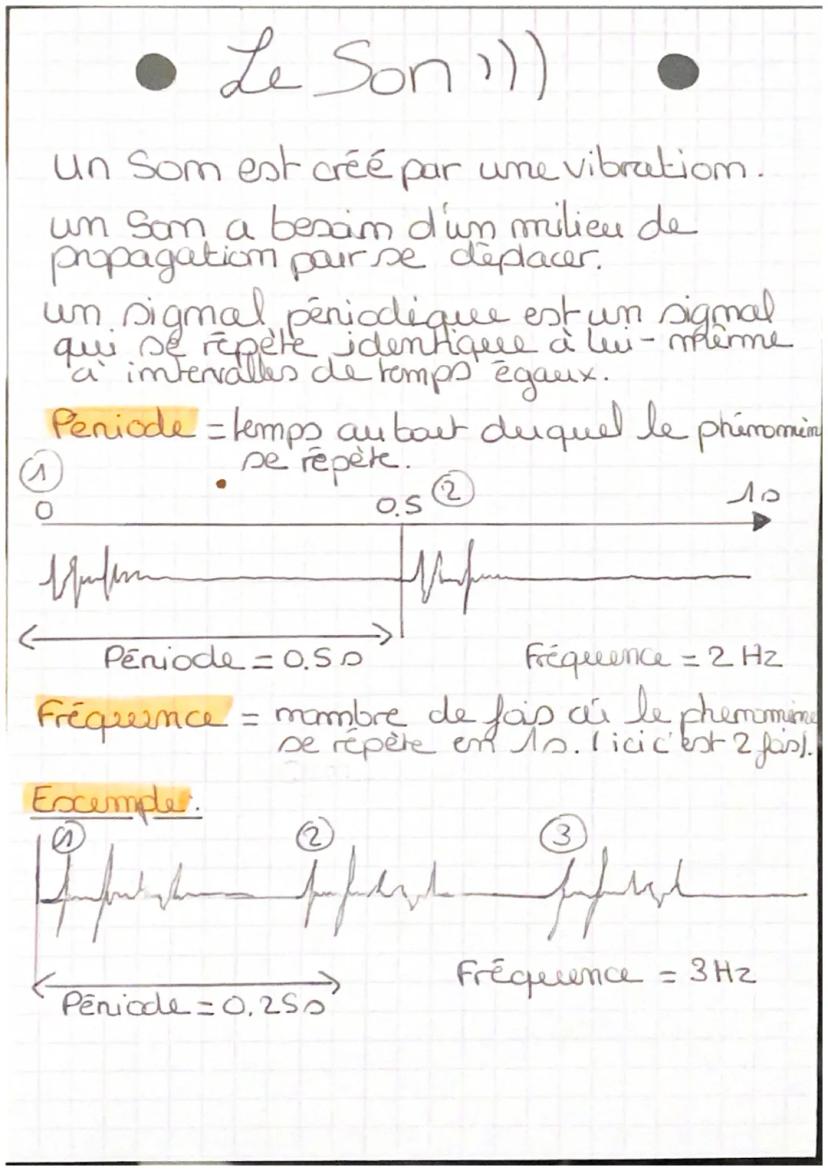 Le Son )))
un Son est créé par une vibration.
un Son a besoin d'un milieu de
propagation pour se déplacer.
un signal périodique est un signal
qui se répète identique à lui-même
à intervalles de temps égaux.
Période = temps au bout duquel le phénomèn
se répète.
1
0 0.5 2 1s
Période = 0.5s Fréquence = 2 Hz
Fréquence = nombre de fois où le phenomène
se répète en 1s. (ici c'est 2 fois).
Exemple:
1 2 3
Fréquence = 3Hz
Période = 0,25s